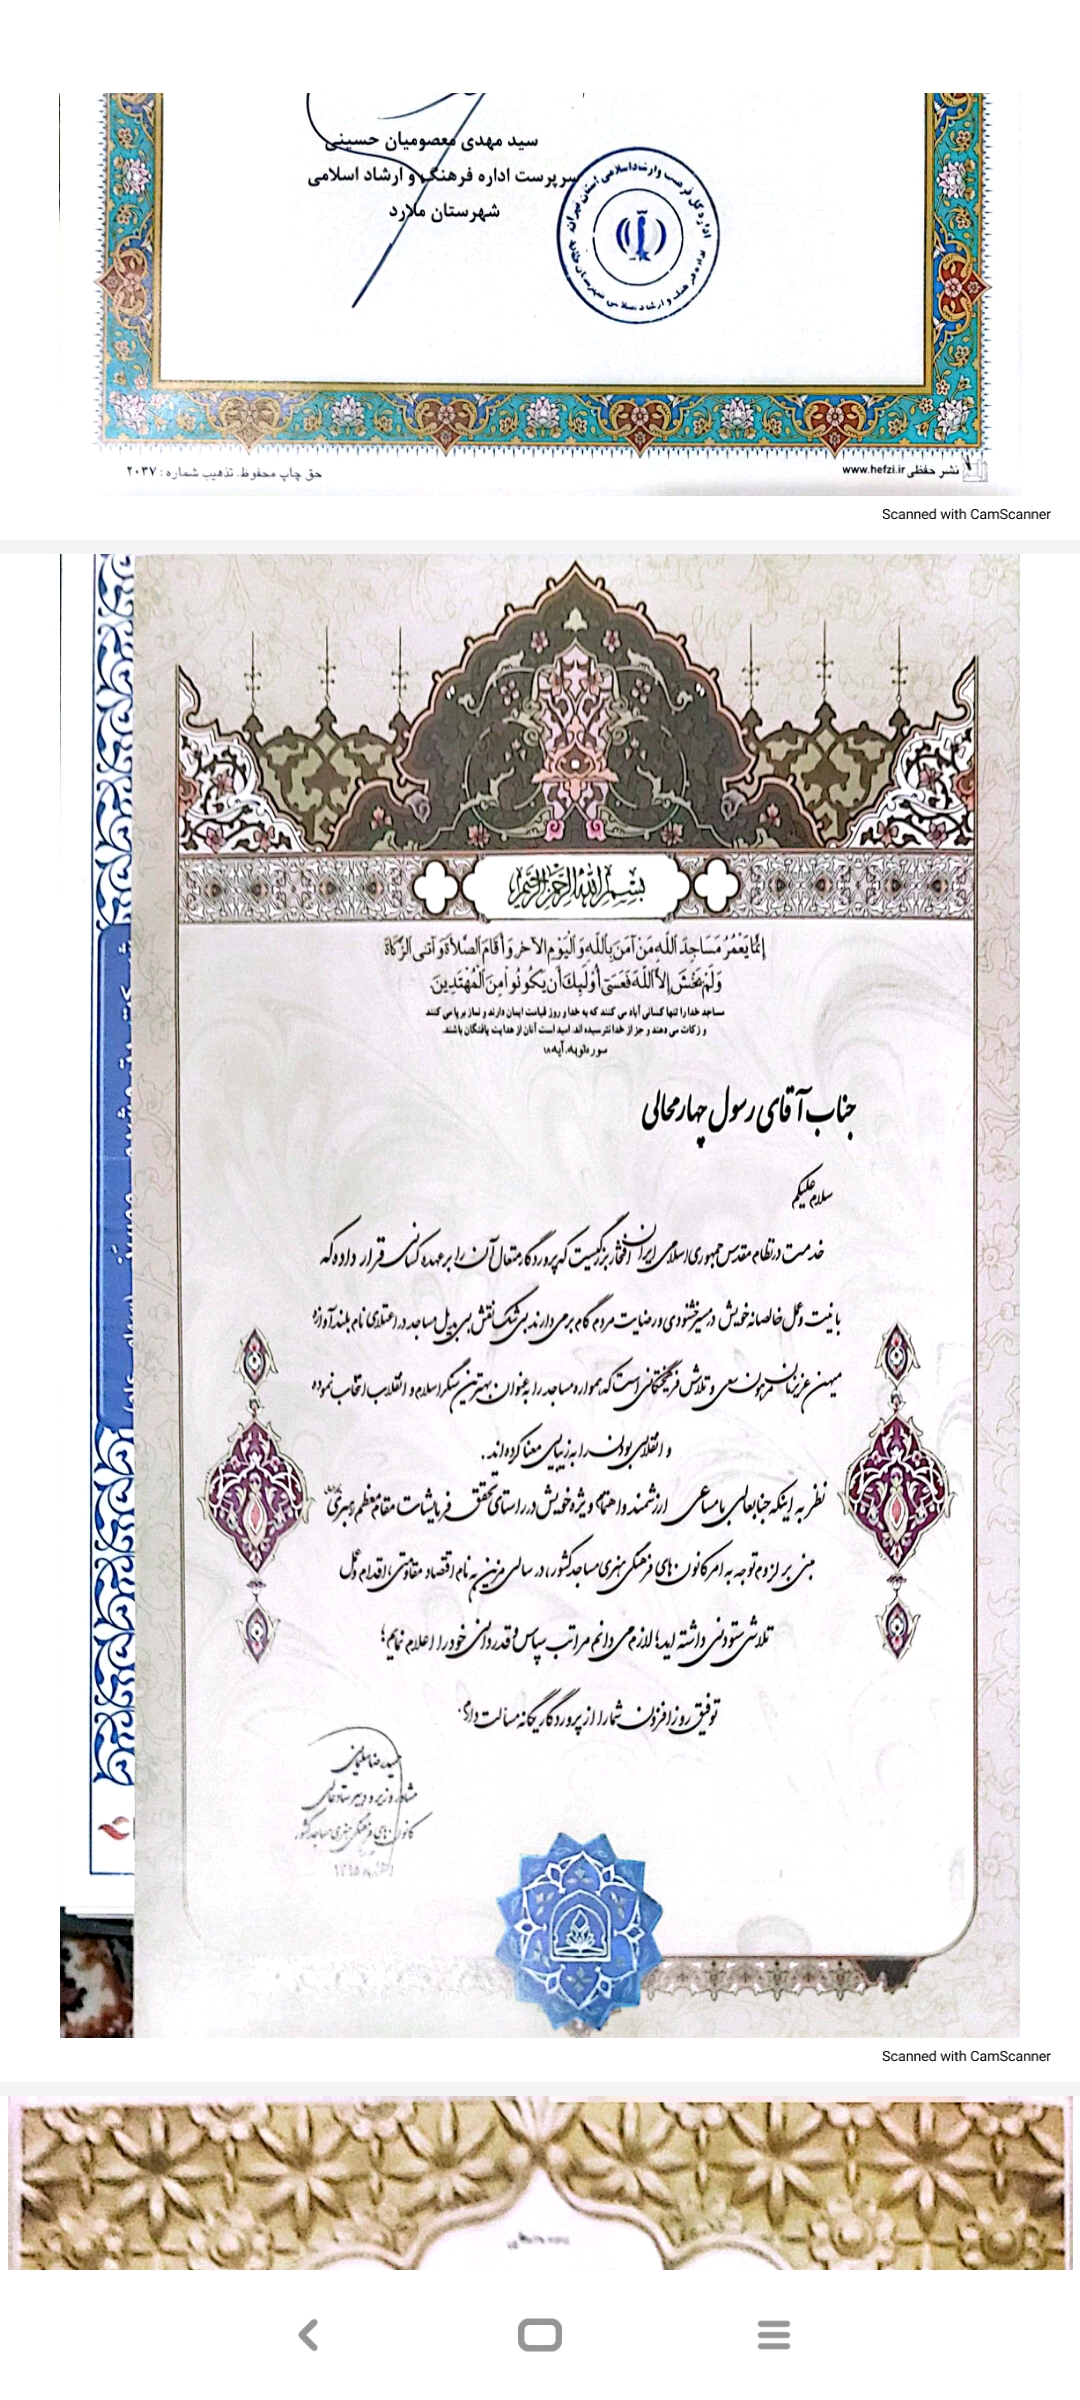 سید مهدی معصومیان حسینی
سرپرست اداره فرهنگ و ارشاد اسلامی
شهرستان ملارد
حق چاپ محفوظ. تذهیب شماره : ۲۰۳۷
نشر حفظی www.hefzi.ir
Scanned with CamScanner
بسم الله الرحمن الرحیم
إِنَّمَا يَعْمُرُ مَسَاجِدَ اللّهِ مَنْ آمَنَ بِاللّهِ وَالْيَوْمِ الآخِرِ وَأَقَامَ الصَّلاَةَ وَآتَى الزَّكَاةَ
وَلَمْ يَخْشَ إِلاَّ اللّهَ فَعَسَى أُوْلَئِكَ أَن يَكُونُواْ مِنَ الْمُهْتَدِينَ
مساجد خدا را تنها کسانی آباد می کنند که به خدا و روز قیامت ایمان دارند و نماز برپا می کنند
و زکات می دهند و جز از خدا نترسیده اند، امید است آنان از هدایت یافتگان باشند.
سوره توبه، آیه ۱۸
جناب آقای رسول چهارمحالی
سلام علیکم
خدمت در نظام مقدس جمهوری اسلامی ایران افتخار بزرگیست که پروردگار متعال آن را بر عهده کسانی قرار داده که
با نیت و عمل خالصانه خویش در مسیر خشنودی و رضایت مردم گام بر می دارند بی شک نقش بی بدیل مساجد در اعتلای نام بلند آوازه
میهن عزیزمان مرهون سعی و تلاش فرهیختگانی است که همواره مساجد را به عنوان بهترین سنگر اسلام و انقلاب انتخاب نموده
و انقلابی بودن را به زیبایی معنا کرده اند.
نظر به اینکه جنابعالی با مساعی ارزشمند و اهتمام ویژه خویش در راستای تحقق فرمایشات مقام معظم رهبری
مبنی بر لزوم توجه به امر کانون های فرهنگی هنری مساجد کشور، در سالی مزین به نام اقتصاد مقاومتی، اقدام و عمل
تلاش ستودنی داشته اید؛ لازم می دانم مراتب سپاس و قدردانی خود را اعلام نمایم؛
توفیق روز افزون شما را از پروردگار یگانه مسالت دارم.
حمید رضا سلیمانی
مشاور وزیر و دبیر ستاد عالی
کانون های فرهنگی هنری مساجد کشور
Scanned with CamScanner